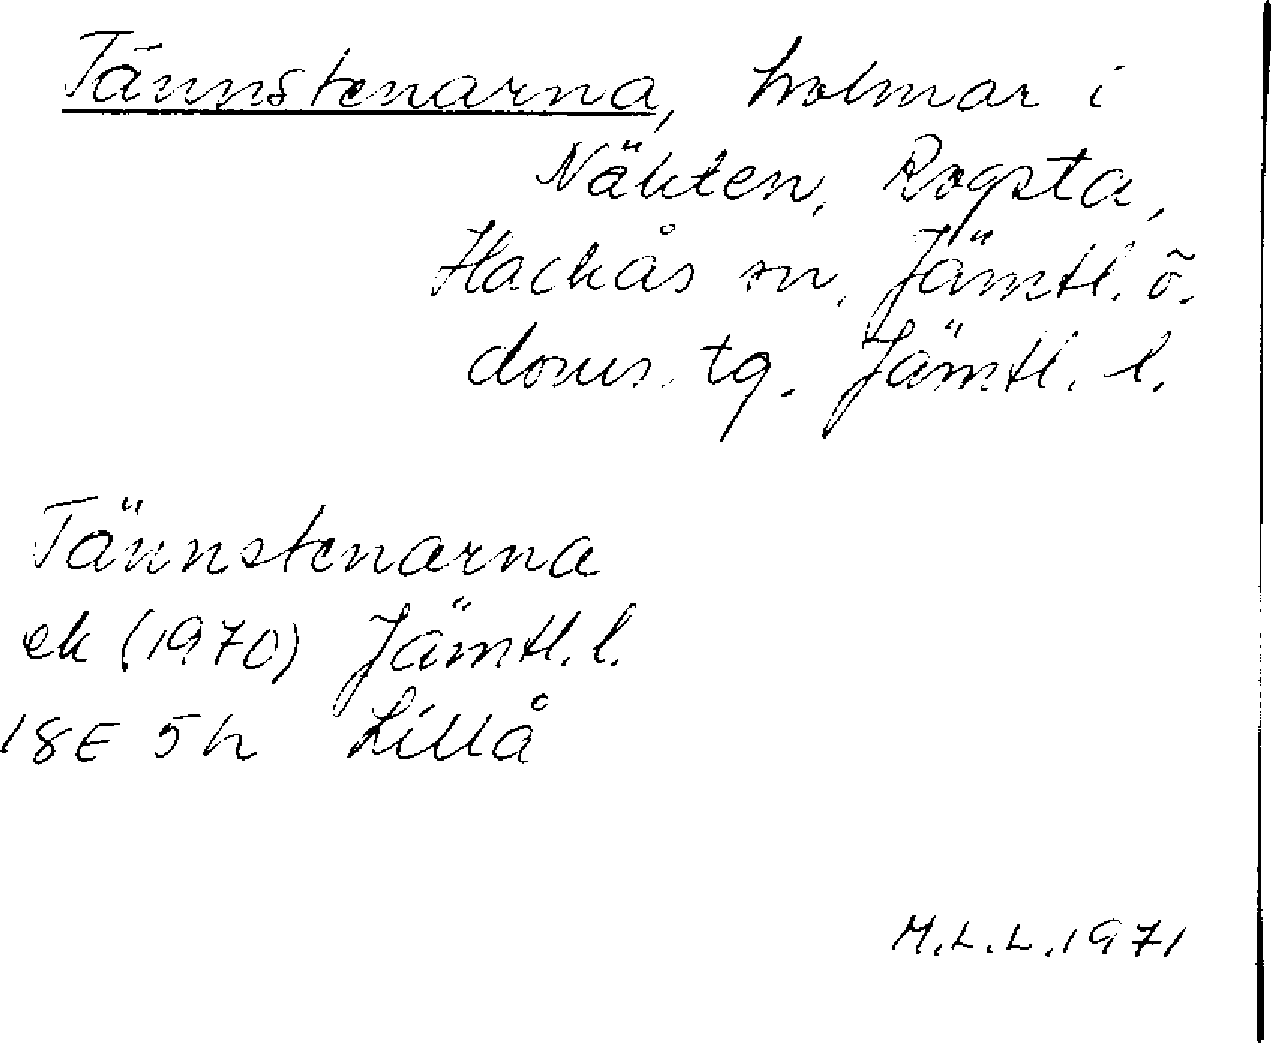 Tännstenarna, holmar i
Näkten, Rogsta,
Hackås sn, Jämtl. ö.
doms. tg. Jämtl. l.
Tännstenarna
ek (1970) Jämtl. l.
18E 5h Lillå
M.L.L. 1971